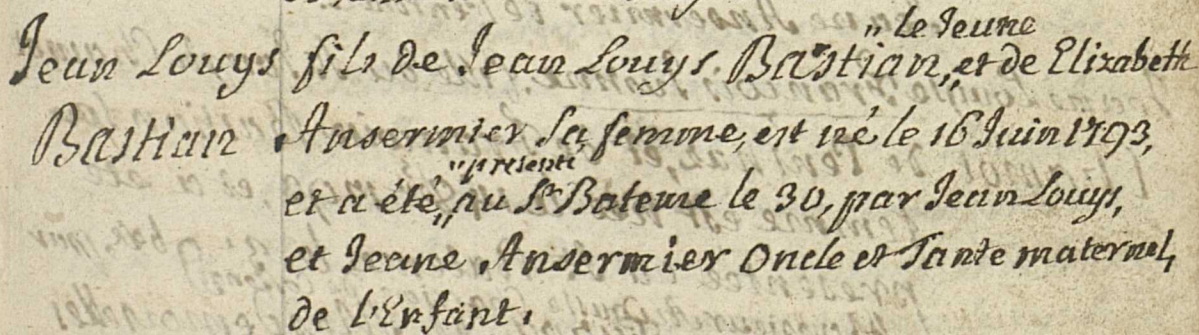 Jean Louys fils de Jean Louys Bastian, "le Jeune" et de Elizabeth
Bastian Ansermier sa femme, est né le 16 Juin 1793,
et a été "presenté" au St Bateme le 30, par Jean Louys,
et Jeane Ansermier Oncle et Tante maternel,
de l'Enfant.